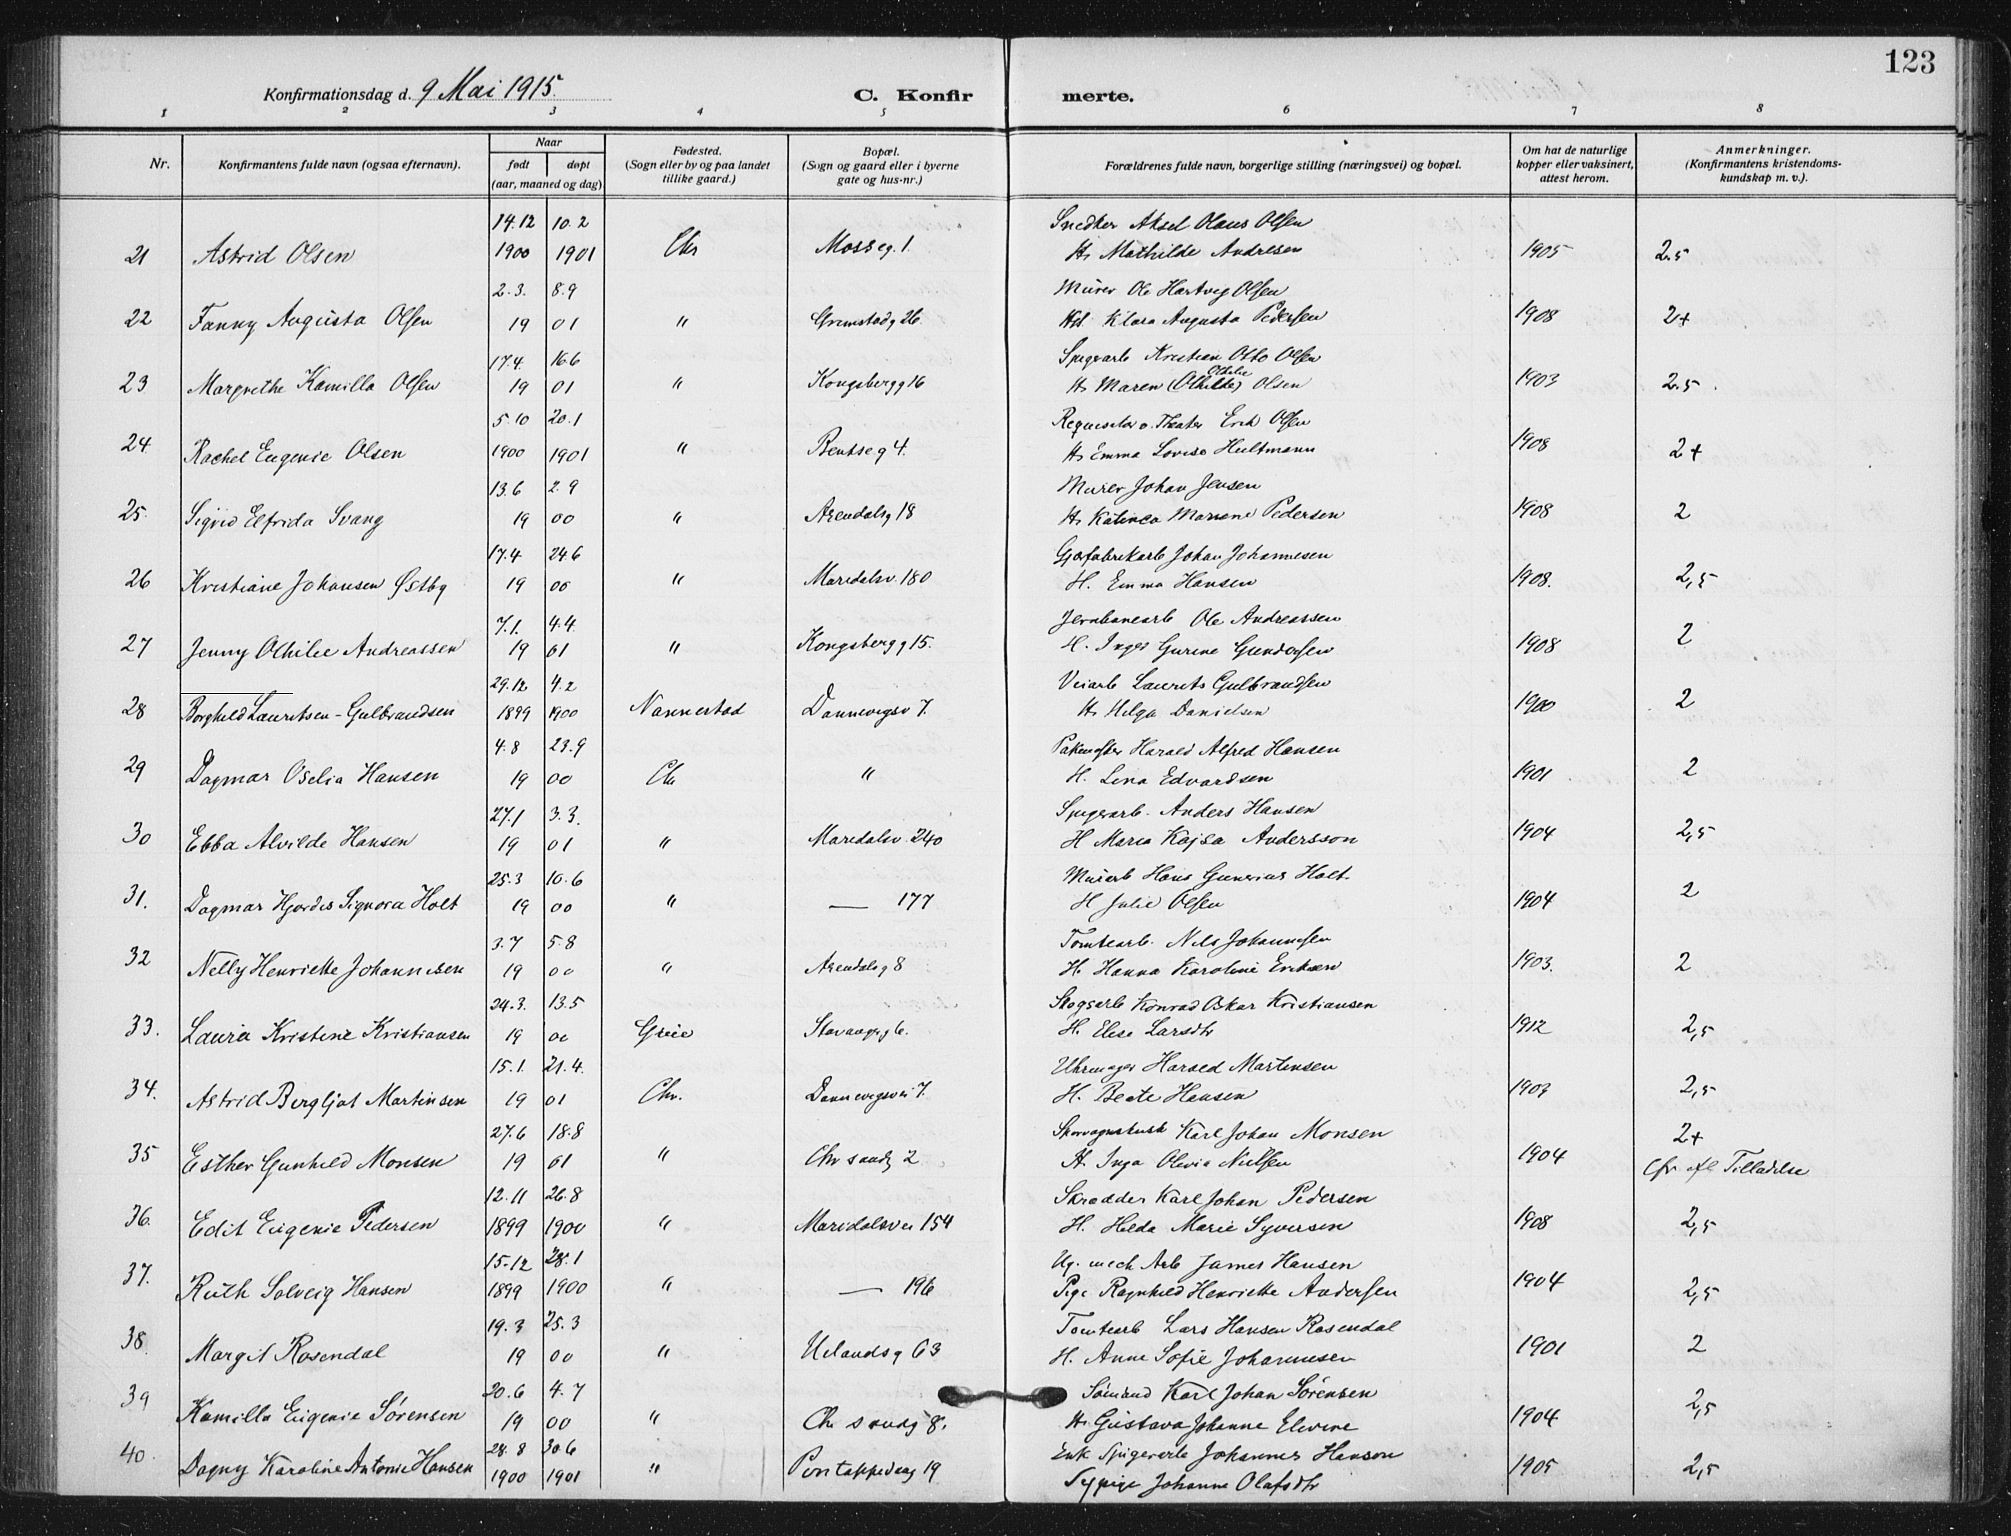 123
Konfirmationsdag d. 9 Mai 1915.
C. Konfirmerte.
1 2 3 4 5 6 7 8
Nr. Konfirmantens fulde navn (ogsaa efternavn). Naar født døpt (aar, maaned og dag) Fødested. (Sogn eller by og paa landet tillike gaard.) Bopæl. (Sogn og gaard eller i byerne gate og hus-nr.) Forældrenes fulde navn, borgerlige stilling (næringsvei) og bopæl. Om hat de naturlige kopper eller vaksinert, attest herom. Anmerkninger. (Konfirmantens kristendomskundskap m. v.).
14.12 10.2 Snedker Aksel Olaus Olsen
21 Astrid Olsen 1900 1901 Chr Mosseg. 1. H. Mathilde Andresen 1905 2.5
2.3. 8.9 Murer Ole Hartvig Olsen
22 Fanny Augusta Olsen 19 01 " Grimstadg 26 Klara Augusta Pedersen 1908 2+
17.4. 16.6 Spigerarb Kristian Otto Olsen
23 Margrethe Kamilla Olsen 19 01 " Kongsbergg 16 H. Maren (Othilde) Othilie Olsen 1903 2.5
5.10 20.1 Requisitør v. Theater Erik Olsen
24 Rachel Eugenie Olsen 1900 1901 " Bentseg 4. H. Emma Lovise Hultmann 1908 2+
13.6 2.9 Murer Johan Jensen
25. Sigrid Elfrida Svang 19 00 " Arendalsg 18 H. Katinca Mariane Pedersen 1908 2
17.4 24.6 Johan Johannesen
26 Kristiane Johansen Østby 19 00 " Maridalsv. 180 H. Emma Hansen 1908. 2,5
7.1. 4.4 Jernbanearb Ole Andreassen
27 Jenny Othilie Andreassen 19 01 " Kongsbergg 15. H. Inger Gurine Gundersen 1908 2
29.12 4.2 Veiarb Laurits Gulbrandsen
28 Borghild Lauritsen-Gulbrandsen 1899 1900 Nannestad Dannevigsv 7. H. Helga Danielsen 1900 2
4.8 23.9 Harald Alfred Hansen
29 Dagmar Oselia Hansen 19 00 Chr " H. Lina Edvardsen 1901 2
27.1 3.3. Spigerarb. Anders Hansen
30 Ebba Alvilde Hansen 19 01 " Maridalsv. 240 H Maria Kajsa Andersson 1904 2,5
25.3 10.6 Murarb Hans Gunerius Holt.
31. Dagmar Hjørdis Signora Holt 19 00 " — 177 H Julie Olsen 1904 2
3.7 5.8 Tomtearb. Nils Johannesen
32 Nelly Henriette Johannesen 19 00 " Arendalsg 8 H. Hanna Karoline Eriksen 1903. 2
24.3. 13.5 Skogsarb Konrad Oskar Kristiansen
33. Laura Kristine Kristiansen 19 00 Grue Stavangerg 6. H. Elise Larsdtr 1912 2,5
15.1. 21.4. Uhrmager Harald Martinsen
34. Astrid Bergljot Martinsen 19 01 Chr. Dannevigsvei 7. H. Beate Hansen 1903 2,5
27.6 18.8 Karl Johan Monsen 2+
35 Esther Gunhild Monsen 19 01 " Chr sandg 2 H. Inga Olevia Nielsen 1904 Tilladelse
12.11 26.8 Skrædder Karl Johan Pedersen
36. Edit Eugenie Pedersen 1899 1900 " Maridalsvei 154 H. Hilda Marie Syversen 1908 2,5
15-12 28.1 Ug. mech Arb James Hansen
37. Ruth Solveig Hansen 1899 1900 " — 196 Pige Ragnhild Henriette Andersen 1904 2,5
19.3 25.3 Tomtearb Lars Hansen Rosendal
38. Margit Rosendal 19 00 " Uelandsg 63 H. Anne Sofie Johannesen 1901 2
20.6 4.7 Sømand Karl Johan Sørensen
39 Kamilla Eugenie Sørensen 19 00 " Chr sandg 8. H. Gustava Johanne Elvine 1904 2,5
28.8 30.6 Enk Spigerarb Johannes Hanson
40. Dagny Karoline Antonie Hansen 1900 1901 " 19 Sypige Johanne Olafsdtr 1905 2,5